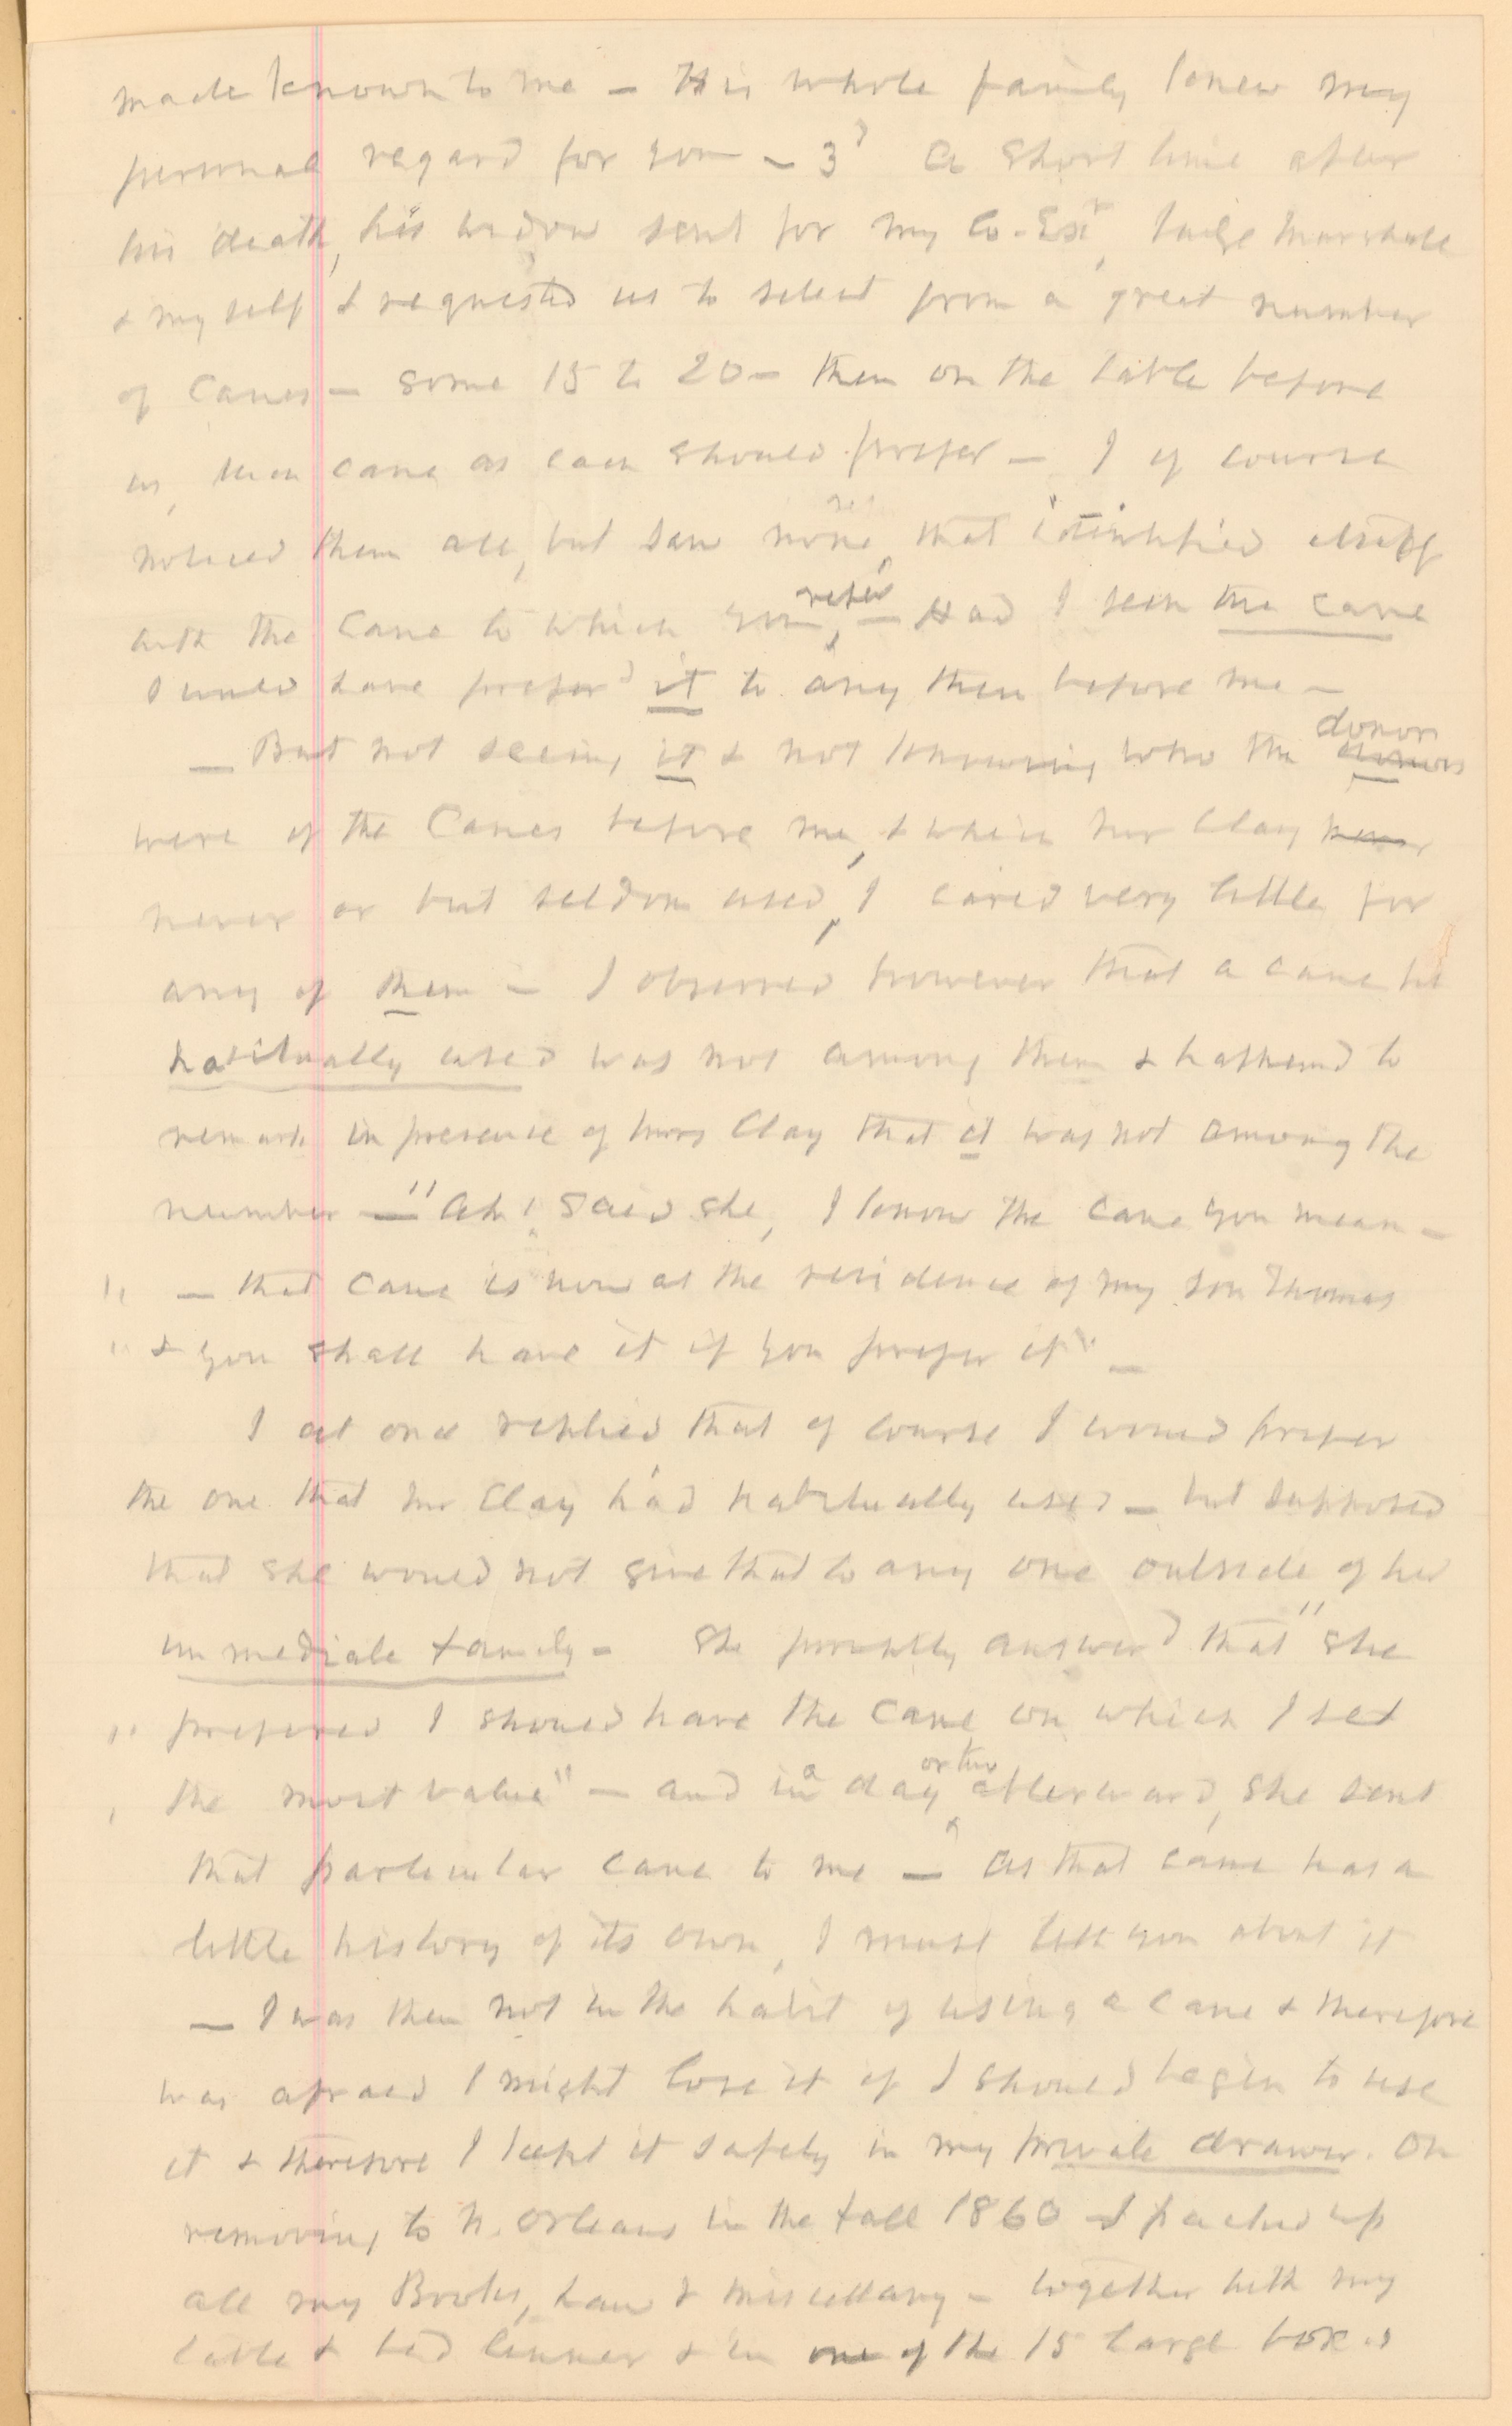 made known to me – His whole family knew my
personal regard for you – 3d A short time after
his death, his widow sent for my Co-Exr, Judge Marshall
& myself & requested us to select from a great number
of Canes – some 15 to 20 – then on the table before
us, such cane as each should prefer – I of course
noticed them all, but saw none, that identified itself
with the Cane to which you refer, – Had I seen the cane
I would have prefer'd it to any then before me –
– But not seeing it & not knowing who the donors donor
were of the Canes before me, & which Mr Clay
never or but seldom used, I cared very little for
any of them – I observed however that a cane he
habitually used was not among them & happened to
remark in presence of Mrs Clay that it was not among the
number – "Ah! said she, I know the cane you mean –
" – that cane is now at the residence of my son Thomas
" & you shall have it if you prefer it" –
I at once replied that of course I would prefer
the one that Mr Clay had habitually used – but supposed
that she would not give that to any one outside of her
immediate family – She promptly answerd that "she
" prefered I should have the cane on which I set
" the most value" – and in a day or two afterward, she sent
that particular cane to me – As that cane has a
little history of its own, I must tell you about it
– I was then not in the habit of using a cane & therefore
was afraid I might lose it if I should begin to use
it & therefore I kept it safely in my private drawer. On
removing to N. Orleans in the fall 1860 I packed up
all my Books, Law & miscellany – together with my
table & bed linnen & in one of the 15 large boxes